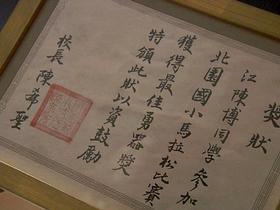 獎狀
江陳博同學參加
北園國小馬拉松比賽
獲得最佳勇器獎
特頒此狀以資鼓勵
校長 陳希聖